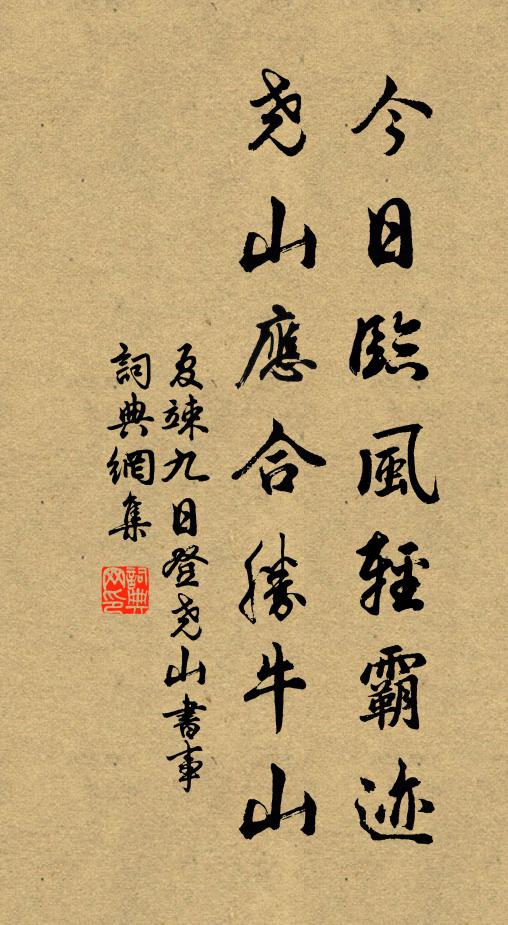 今日臨風輕霸迹
尧山應合勝牛山
夏竦九日登尧山書事
詞典網集
詞典网印